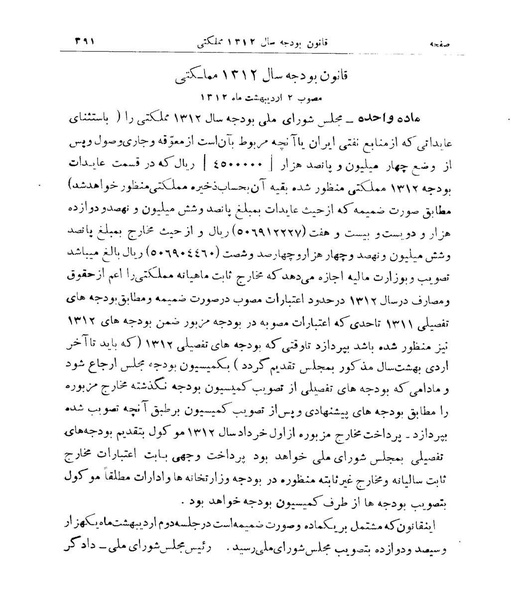 صفحه قانون بودجه سال ۱۳۱۲ مملکتی ۳۹۱
قانون بودجه سال ۱۳۱۲ مملکتی
مصوب ۲ اردیبهشت ماه ۱۳۱۲
ماده واحده – مجلس شورای ملی بودجه سال ۱۳۱۲ مملکتی را ( باستثنای
عایداتی که از منابع نفتی ایران یا آنچه مربوط بآن است از معوقه و جاری وصول و پس
از وضع چهار میلیون و پانصد هزار | ۴۵۰۰۰۰۰ | ریال که در قسمت عایدات
بودجه ۱۳۱۲ مملکتی منظور شده بقیه آن بحساب ذخیره مملکتی منظور خواهد شد)
مطابق صورت ضمیمه که از حیث عایدات بمبلغ پانصد وشش میلیون و نهصد و دوازده
هزار و دویست و بیست و هفت (۵۰۶۹۱۲۲۲۷) ریال و از حیث مخارج بمبلغ پانصد
وشش میلیون و نهصد و چهار هزار و چهار صد و شصت (۵۰۶۹۰۴۴۶۰) ریال بالغ میباشد
تصویب و بوزارت مالیه اجازه می‌دهد که مخارج ثابت ماهیانه مملکتی را اعم از حقوق
و مصارف در سال ۱۳۱۲ در حدود اعتبارات مصوب در صورت ضمیمه و مطابق بودجه های
تفصیلی ۱۳۱۱ تا حدی که اعتبارات مصوبه در بودجه مزبور ضمن بودجه های ۱۳۱۲
نیز منظور شده باشد بپردازد تا وقتی که بودجه های تفصیلی ۱۳۱۲ (که باید تا آخر
اردی بهشت سال مذکور بمجلس تقدیم گردد ) بکمیسیون بودجه مجلس ارجاع شود
و مادامی که بودجه های تفصیلی از تصویب کمیسیون بودجه نگذشته مخارج مزبوره
را مطابق بودجه های پیشنهادی و پس از تصویب کمیسیون برطبق آنچه تصویب شده
بپردازد – پرداخت مخارج مزبوره از اول خرداد سال ۱۳۱۲ موکول بتقدیم بودجه‌های
تفصیلی بمجلس شورای ملی خواهد بود پرداخت وجهی بابت اعتبارات مخارج
ثابت سالیانه و مخارج غیر ثابته منظوره در بودجه وزارتخانه ها و ادارات مطلقاً موکول
بتصویب بودجه ها از طرف کمیسیون بودجه خواهد بود .
این قانون که مشتمل بر یک ماده و صورت ضمیمه است در جلسه دوم اردیبهشت ماه یکهزار
و سیصد و دوازده بتصویب مجلس شورای ملی رسید . رئیس مجلس شورای ملی – دادگر